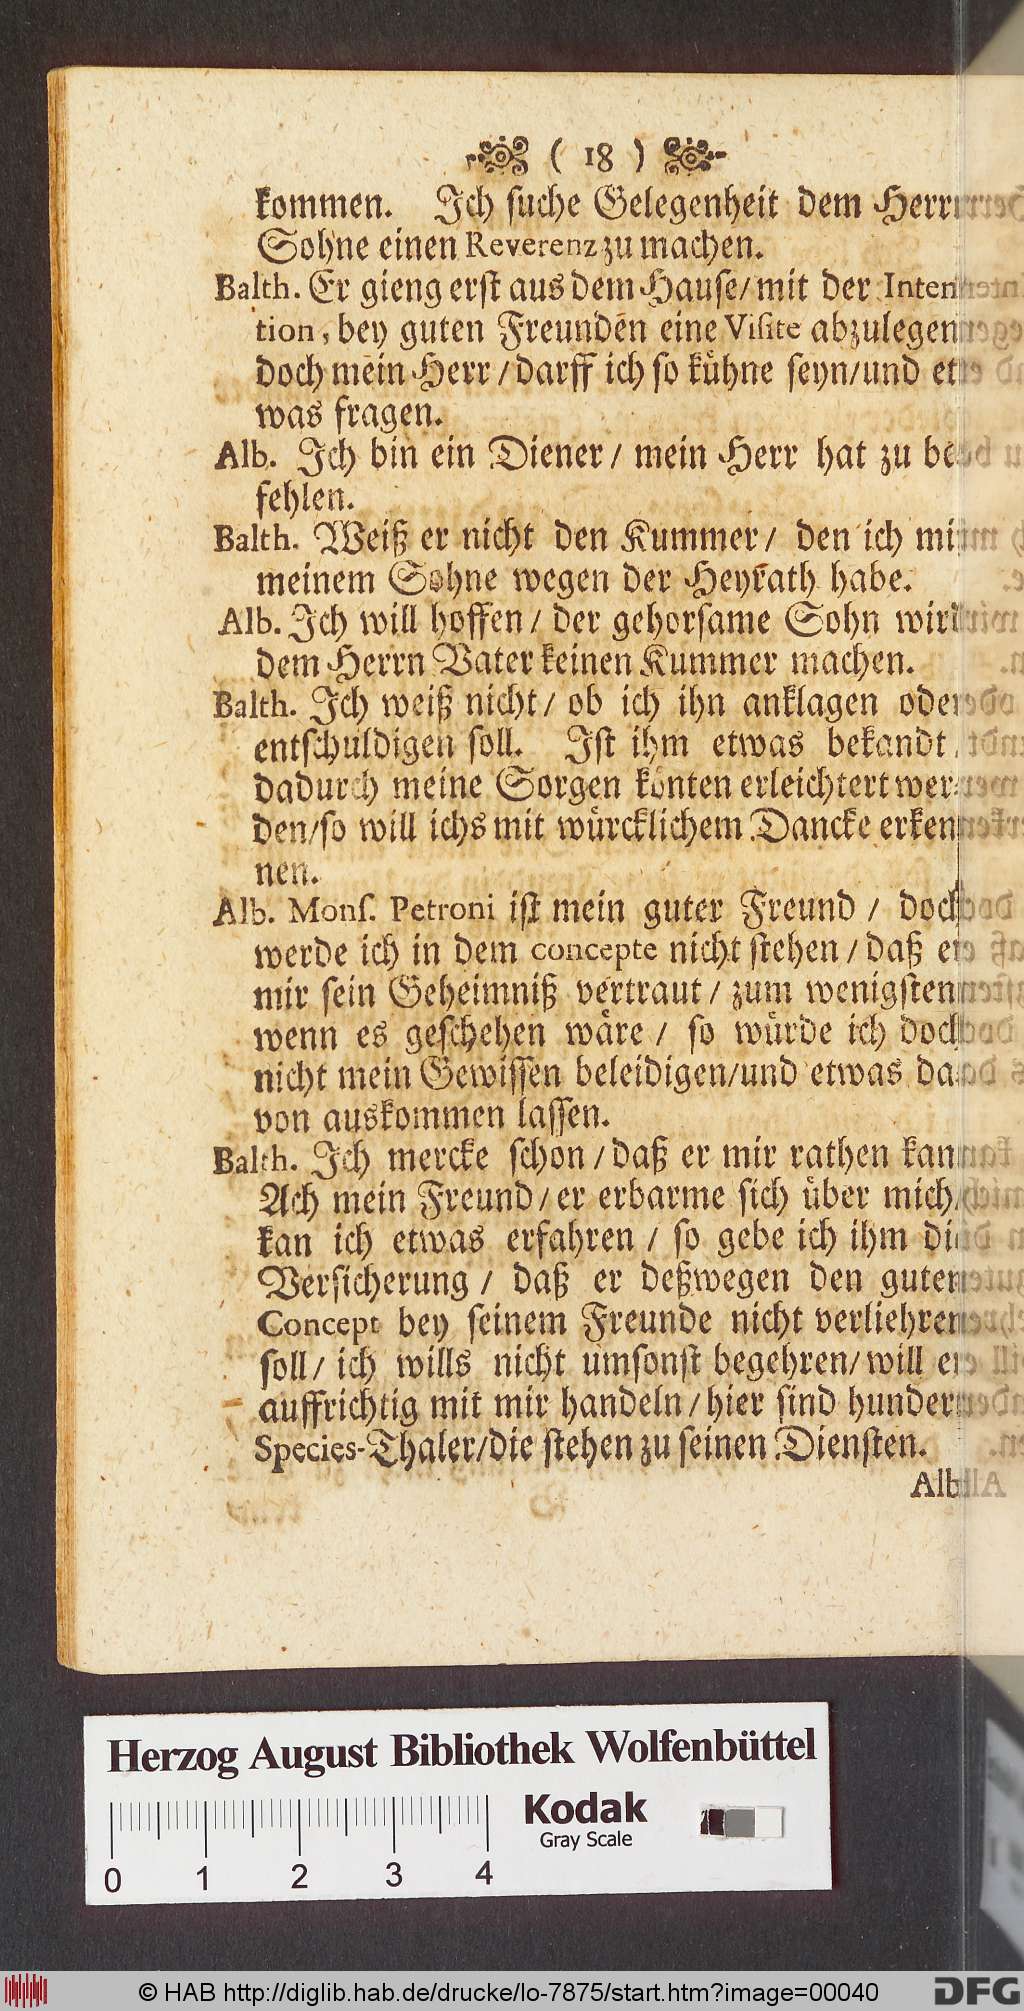 ( 18 )
kommen. Ich suche Gelegenheit dem Herrn
Sohne einen Reverenz zu machen.
Balth. Er gieng erst aus dem Hause/ mit der Inten-
tion, bey guten Freunden eine Visite abzulegen
doch mein Herr/ darff ich so kühne seyn/ und et
was fragen.
Alb. Ich bin ein Diener/ mein Herr hat zu be
fehlen.
Balth. Weiß er nicht den Kummer/ den ich mit
meinem Sohne wegen der Heyrath habe.
Alb. Ich will hoffen/ der gehorsame Sohn wird
dem Herrn Vater keinen Kummer machen.
Balth. Ich weiß nicht/ ob ich ihn anklagen oder
entschuldigen soll. Ist ihm etwas bekandt
dadurch meine Sorgen könten erleichtert wer-
den/ so will ichs mit würcklichem Dancke erken
nen.
Alb. Monſ. Petroni ist mein guter Freund/ doch
werde ich in dem concepte nicht stehen/ daß er
mir sein Geheimniß vertraut/ zum wenigsten
wenn es geschehen wäre/ so würde ich doch
nicht mein Gewissen beleidigen/ und etwas da-
von auskommen lassen.
Balth. Ich mercke schon/ daß er mir rathen kan
Ach mein Freund/ er erbarme sich über mich/
kan ich etwas erfahren/ so gebe ich ihm die
Versicherung/ daß er deßwegen den guten
Concept bey seinem Freunde nicht verliehren
soll/ ich wills nicht umsonst begehren/ will er
auffrichtig mit mir handeln/ hier sind hundert
Species-Thaler/ die stehen zu seinen Diensten.
Alb
Herzog August Bibliothek Wolfenbüttel
Kodak
Gray Scale
0 1 2 3 4
© HAB http://diglib.hab.de/drucke/lo-7875/start.htm?image=00040
DFG